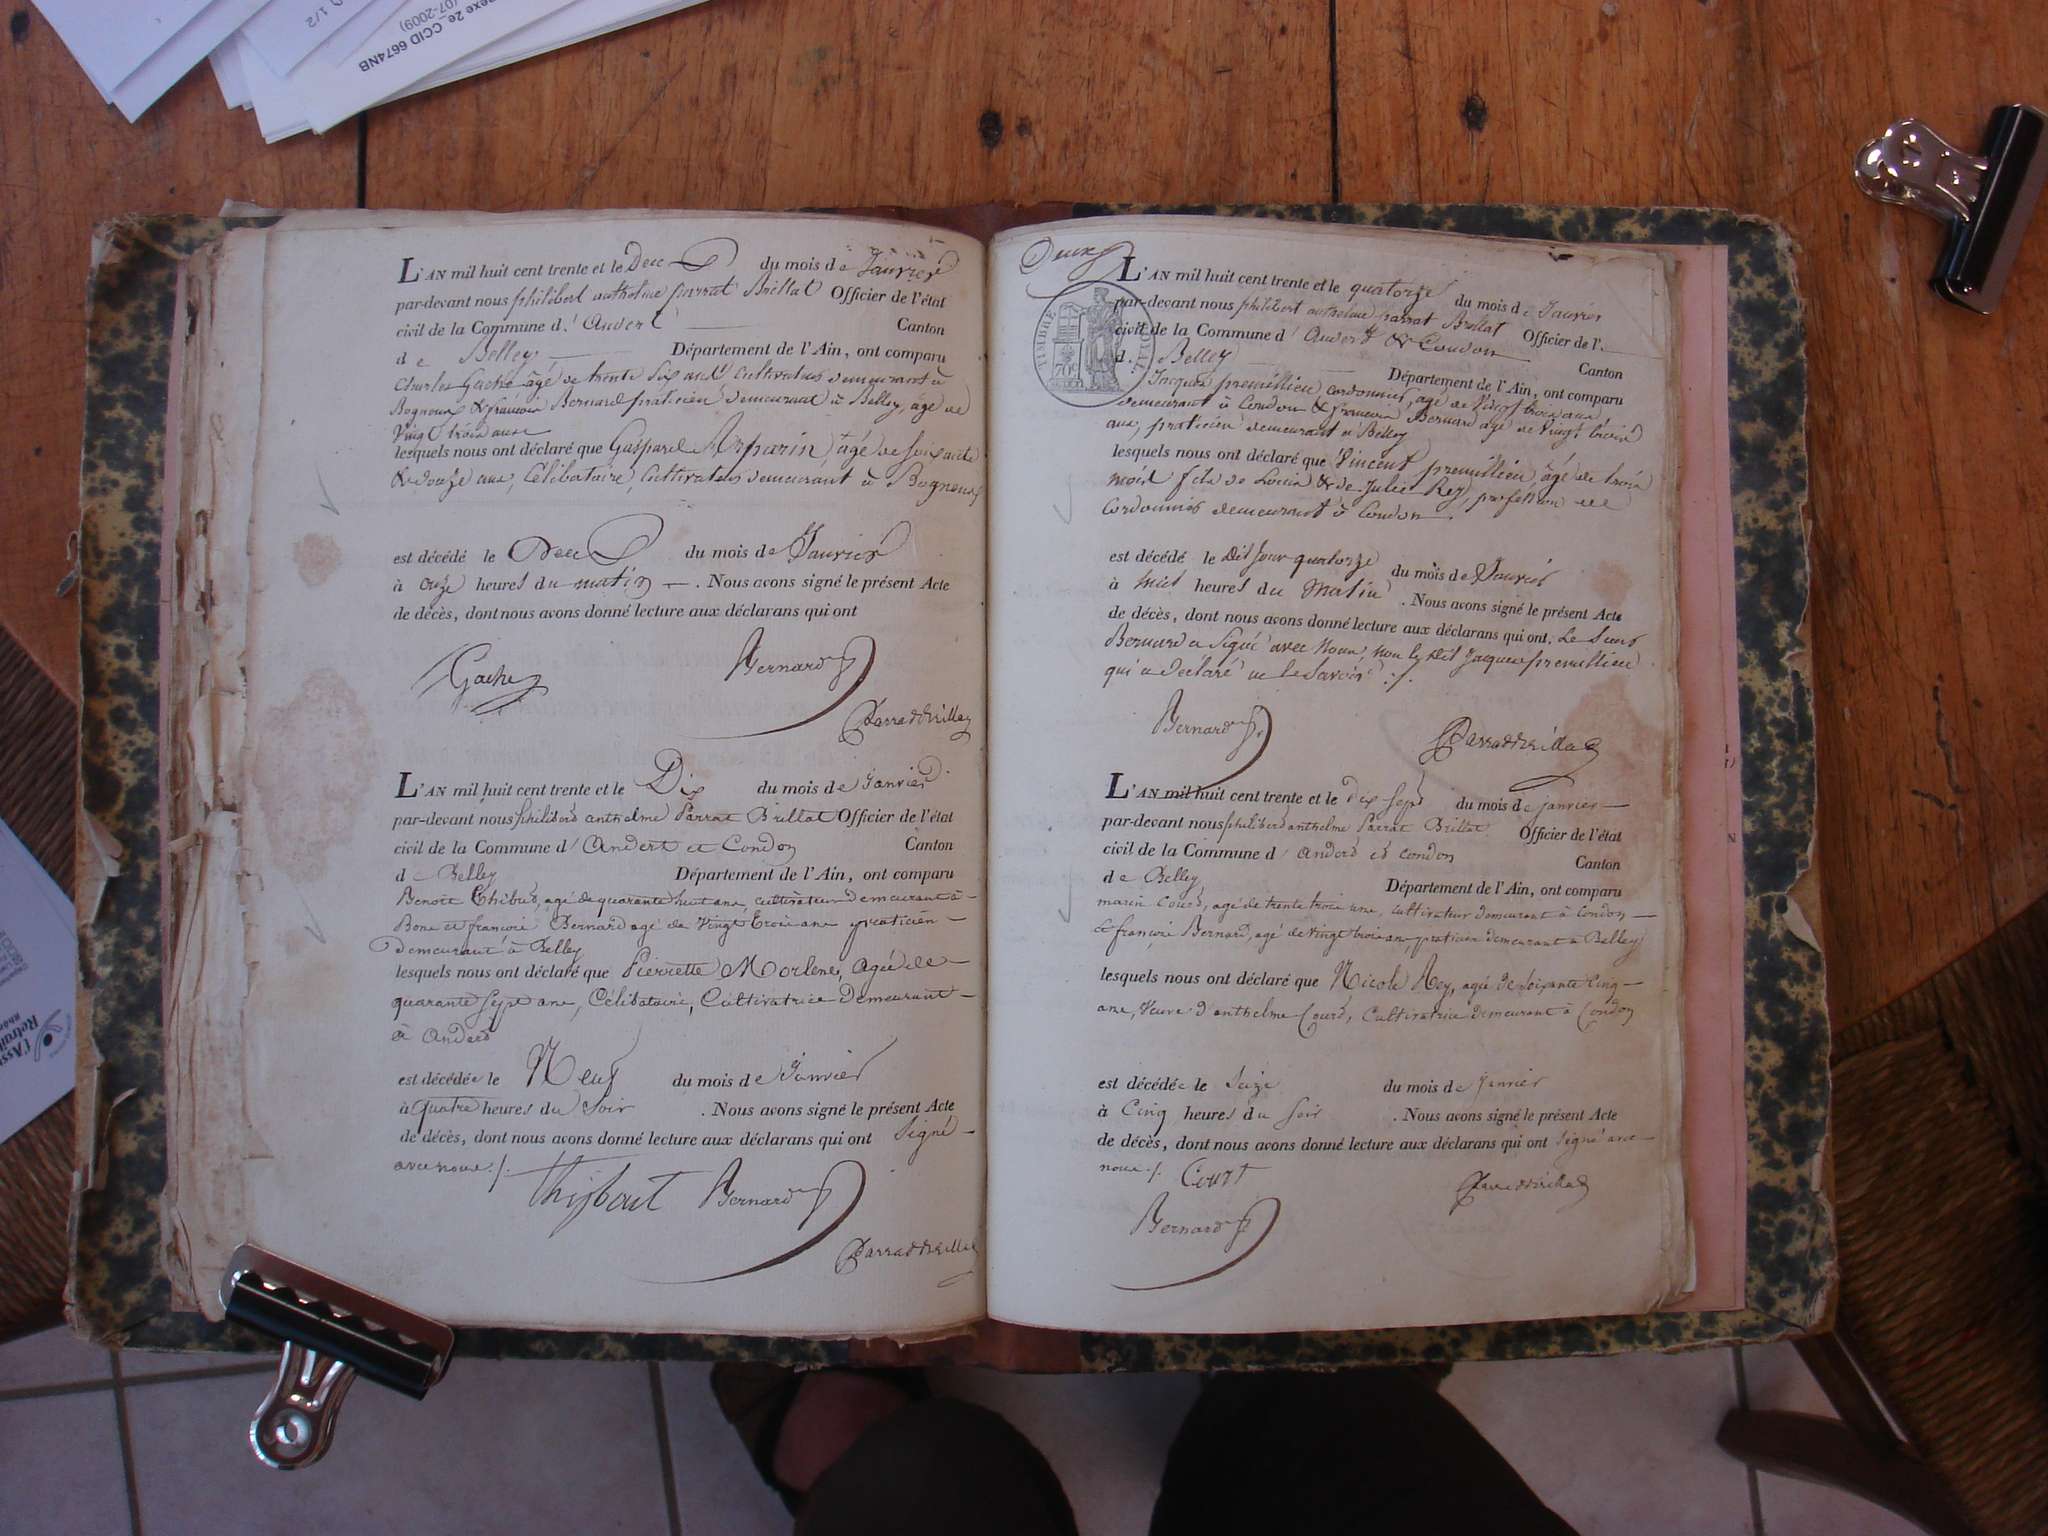 exe 2e_ CCID 6674NB
/07-2009)
1/2
L'AN mil huit cent trente et le Deux du mois de Janvier
par-devant nous philibert anthelme parrat Brillat Officier de l'état
civil de la Commune d' Andert Canton
de Belley Département de l'Ain, ont comparu
Charles Gaché âgé de trente six ans cultivateur demeurant à
Bognoux & françois Bernard praticien demeurant à Belley, âgé de
Vingt trois ans
lesquels nous ont déclaré que Gaspard Arparin, âgé de soixante
& douze ans, Célibataire, Cultivateur demeurant à Bognoux
est décédé le Deux du mois de Janvier
à onze heures du matin. Nous avons signé le présent Acte
de décès, dont nous avons donné lecture aux déclarans qui ont
Gache Bernard
Parrat Brillat
L'AN mil huit cent trente et le Dix du mois de Janvier
par-devant nous philiberd anthelme Parrat Brillat Officier de l'état
civil de la Commune d' Anderd et Condon Canton
de Belley Département de l'Ain, ont comparu
Benoit Thibud, agé de quarante huit ans, cultivateur demeurant à
Bons et françois Bernard agé de Vingt trois ans praticien
demeurant à Belley
lesquels nous ont déclaré que Pierrette Morlene, Agée de
quarante sept ans, Célibataire, Cultivatrice Demeurant
à Anderd
est décédée le Neuf du mois de Janvier
à quatre heures du soir. Nous avons signé le présent Acte
de décès, dont nous avons donné lecture aux déclarans qui ont Signé
avec nous ./.
Thisbaut Bernard
Parrat Brillat
Deux
TIMBRE ROYAL
70c
L'AN mil huit cent trente et le quatorze du mois de Janvier
par-devant nous philibert anthelme parrat Brillat Officier de l'
civil de la Commune d' Andert & Condon Canton
de Belley Département de l'Ain, ont comparu
Jacques premillieu, cordonnier, âgé de Vingt trois ans
demeurant à Condon & françois Bernard âgé de Vingt trois
ans, praticien demeurant à Belley
lesquels nous ont déclaré que Vincent premillieu, âgé de trois
mois fils de Louis & de Julie Rey, profession de
Cordonnier demeurant à Condon
est décédé le dit jour quatorze du mois de Janvier
à heures du Matin. Nous avons signé le présent Acte
de décès, dont nous avons donné lecture aux déclarans qui ont. Le Sieur
Bernard a Signé avec Nous, non le dit Jacques premillieu
qui a déclaré ne le Savoir ./.
Bernard Parrat Brillat
L'AN mil huit cent trente et le dix sept du mois de janvier
par-devant nous philiberd anthelme Parrat Brillat Officier de l'état
civil de la Commune d' Anderd et Condon Canton
de Belley Département de l'Ain, ont comparu
marin Courd, agé de trente trois ans, Cultivateur demeurant à Condon
& françois Bernard, agé de vingt trois ans, praticien demeurant à Belley
lesquels nous ont déclaré que Nicole Rey, agée de soixante Cinq
ans, Veuve d'anthelme Courd, Cultivatrice demeurant à Condon
est décédée le Seize du mois de Janvier
à Cinq heures du Soir. Nous avons signé le présent Acte
de décès, dont nous avons donné lecture aux déclarans qui ont Signé avec
nous ./. Court Parrat Brillat
Bernard